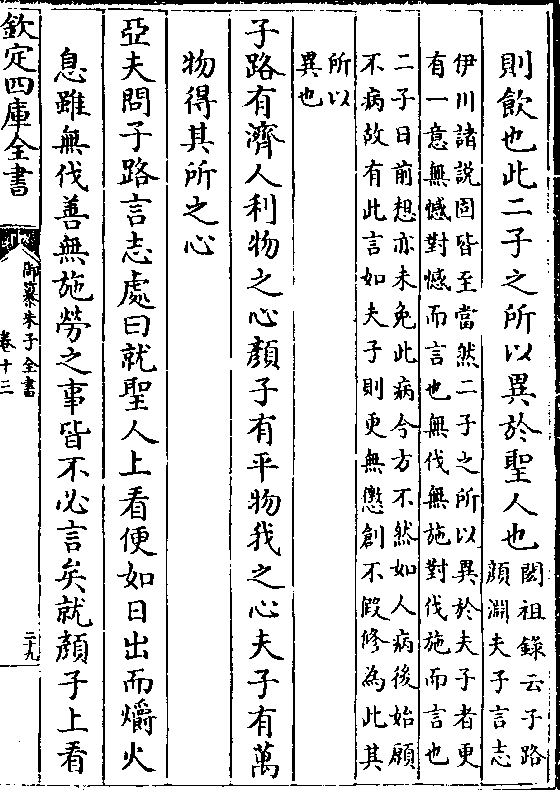 則飲也此二子之所以異於聖人也閎祖錄云子路
顏淵夫子言志
伊川諸說固皆至當然二子之所以異於夫子者更
有一意無憾對憾而言也無伐無施對伐施而言也
二子日前想亦未免此病今方不然如人病後始願
不病故有此言如夫子則更無懲創不假修為此其
所以
異也
子路有濟人利物之心顏子有平物我之心夫子有萬
物得其所之心
亞夫問子路言志處曰就聖人上看便如日出而爝火
息雖無伐善無施勞之事皆不必言矣就顏子上看
欽定四庫全書
御纂朱子全書
卷十三
二十九